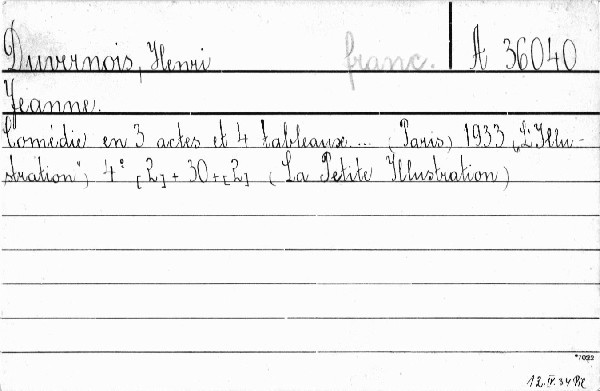 Duvernois, Henri franc. A 36040
Jeanne.
Comédie en 3 actes et 4 tableaux ... (Paris) 1933 „L'Illu-
stration"; 4° [2] + 30 + [2] (La Petite Illustration)
12. IV. 34